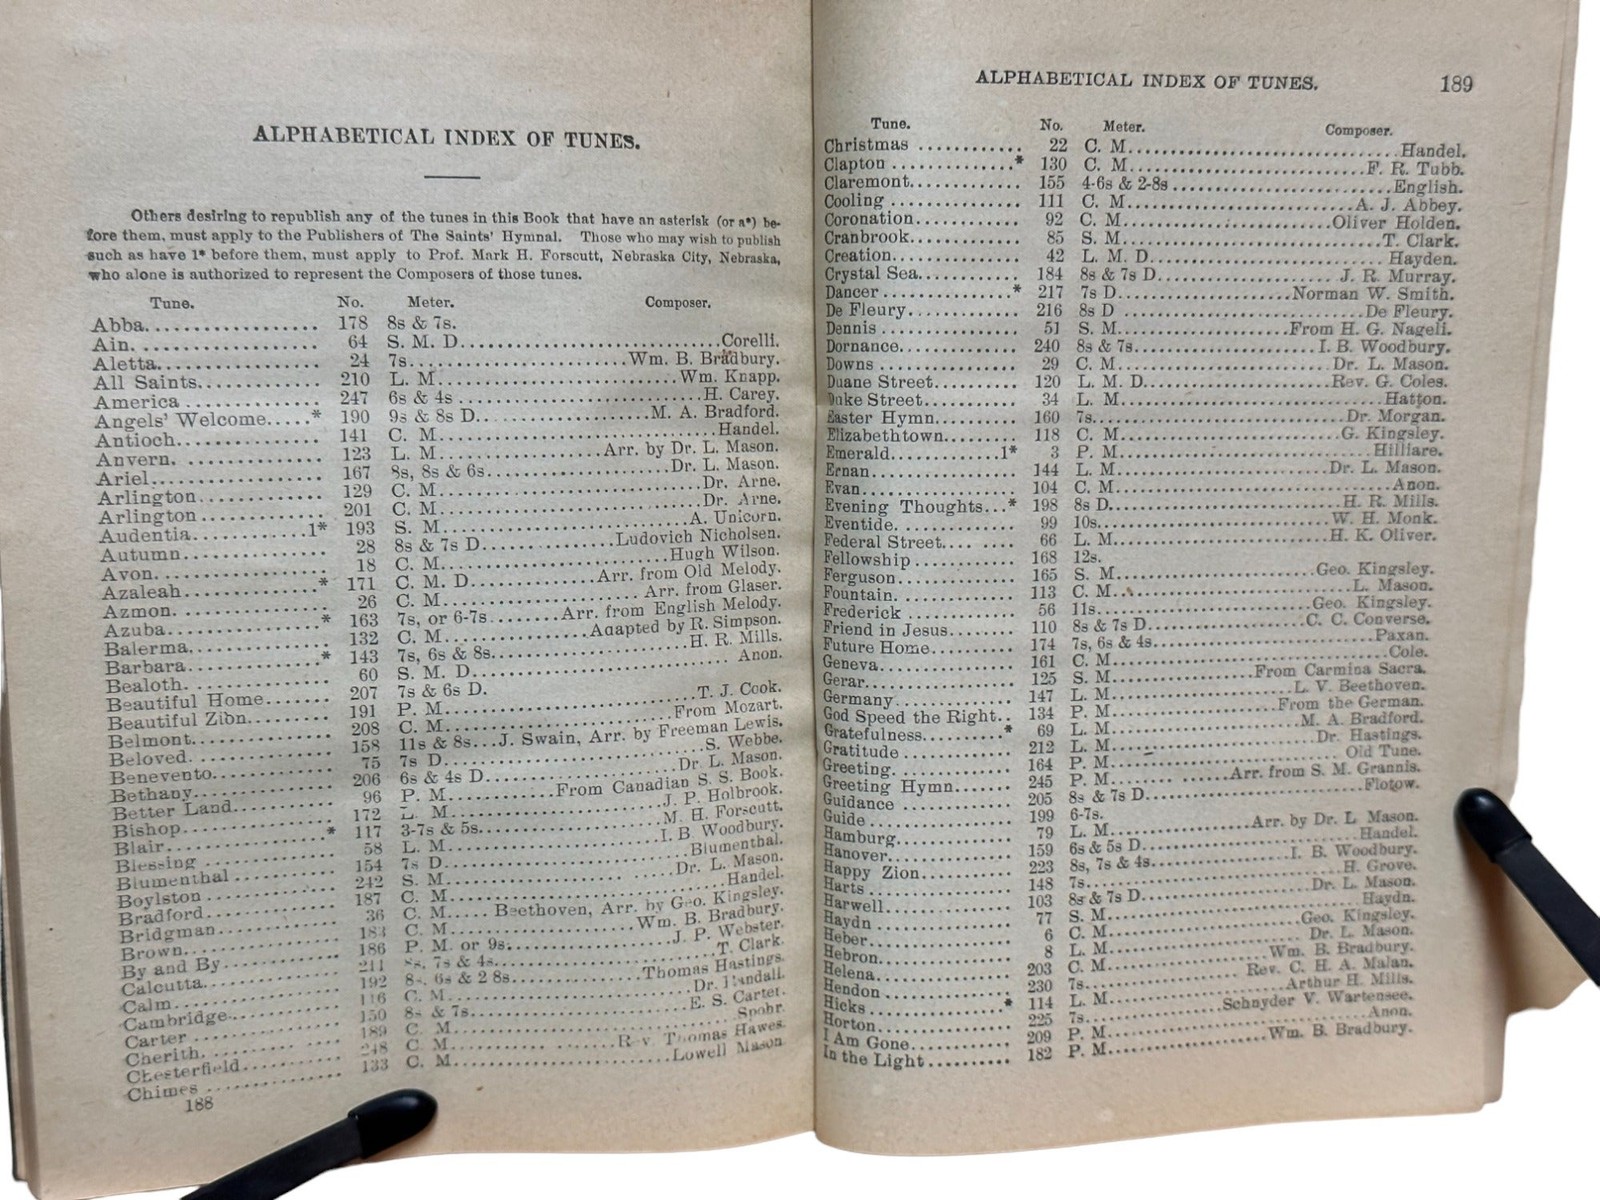 ALPHABETICAL INDEX OF TUNES.
Others desiring to republish any of the tunes in this Book that have an asterisk (or a*) be-
fore them, must apply to the Publishers of The Saints' Hymnal. Those who may wish to publish
such as have 1* before them, must apply to Prof. Mark H. Forscutt, Nebraska City, Nebraska,
who alone is authorized to represent the Composers of those tunes.
Tune. No. Meter. Composer.
Abba 178 8s & 7s.
Ain 64 S. M. D Corelli.
Aletta 24 7s Wm. B. Bradbury.
All Saints 210 L. M Wm. Knapp.
America 247 6s & 4s H. Carey.
Angels' Welcome * 190 9s & 8s D M. A. Bradford.
Antioch 141 C. M Handel.
Anvern 123 L. M Arr. by Dr. L. Mason.
Ariel 167 8s, 8s & 6s Dr. L. Mason.
Arlington 129 C. M Dr. Arne.
Arlington 201 C. M Dr. Arne.
Audentia 1* 193 S. M A. Unicorn.
Autumn 28 8s & 7s D Ludovich Nicholsen.
Avon 18 C. M Hugh Wilson.
Azaleah * 171 C. M. D Arr. from Old Melody.
Azmon 26 C. M Arr. from Glaser.
Azuba * 163 7s, or 6-7s Arr. from English Melody.
Balerma 132 C. M Adapted by R. Simpson.
Barbara * 143 7s, 6s & 8s H. R. Mills.
Bealoth 60 S. M. D Anon.
Beautiful Home 207 7s & 6s D.
Beautiful Zion 191 P. M T. J. Cook.
Belmont 208 C. M From Mozart.
Beloved 158 11s & 8s J. Swain, Arr. by Freeman Lewis.
Benevento 75 7s D S. Webbe.
Bethany 206 6s & 4s D Dr. L. Mason.
Better Land 96 P. M From Canadian S. S. Book.
Bishop 172 L. M J. P. Holbrook.
Blair * 117 3-7s & 5s M. H. Forscutt.
Blessing 58 L. M I. B Woodbury.
Blumenthal 154 7s D Blumenthal.
Boylston 242 S. M Dr. L. Mason.
Bradford 187 C. M Handel.
Bridgman 36 C. M Beethoven, Arr. by Geo. Kingsley.
Brown 183 C. M Wm. B. Bradbury.
By and By 186 P. M. or 9s J. P. Webster.
Calcutta 211 7s & 4s T. Clark.
Calm 192 6s & 2 8s Thomas Hastings.
Cambridge 116 C. M Dr. Randall.
Carter 150 8s & 7s E. S. Carter.
Cherith 189 C. M Spohr.
Chesterfield 248 C. M Rev Thomas Hawes.
Chimes 133 C. M Lowell Mason.
188
ALPHABETICAL INDEX OF TUNES. 189
Tune. No. Meter. Composer.
Christmas 22 C. M Handel.
Clapton * 130 C. M F. R. Tubb.
Claremont 155 4-6s & 2-8s English.
Cooling 111 C. M A. J. Abbey.
Coronation 92 C. M Oliver Holden.
Cranbrook 85 S. M T. Clark.
Creation 42 L. M. D Hayden.
Crystal Sea 184 8s & 7s D J. R. Murray.
Dancer * 217 7s D Norman W. Smith.
De Fleury 216 8s D De Fleury.
Dennis 51 S. M From H. G. Nageli.
Dornance 240 8s & 7s I. B. Woodbury.
Downs 29 C. M Dr. L. Mason.
Duane Street 120 L. M. D Rev. G. Coles.
Duke Street 34 L. M Hatton.
Easter Hymn 160 7s Dr. Morgan.
Elizabethtown 118 C. M G. Kingsley.
Emerald 1* 3 P. M Hilliare.
Ernan 144 L. M Dr. L. Mason.
Evan 104 C. M Anon.
Evening Thoughts * 198 8s D H. R. Mills.
Eventide 99 10s W. H. Monk.
Federal Street 66 L. M H. K. Oliver.
Fellowship 168 12s.
Ferguson 165 S. M Geo. Kingsley.
Fountain 113 C. M L. Mason.
Frederick 56 11s Geo. Kingsley.
Friend in Jesus 110 8s & 7s D C. C. Converse.
Future Home 174 7s, 6s & 4s Paxan.
Geneva 161 C. M Cole.
Gerar 125 S. M From Carmina Sacra.
Germany 147 L. M L. V. Beethoven.
God Speed the Right 134 P. M From the German.
Gratefulness * 69 L. M M. A. Bradford.
Gratitude 212 L. M Dr. Hastings.
Greeting 164 P. M Old Tune.
Greeting Hymn 245 P. M Arr. from S. M. Grannis.
Guidance 205 8s & 7s D Flotow.
Guide 199 6-7s.
Hamburg 79 L. M Arr. by Dr. L Mason.
Hanover 159 6s & 5s D Handel.
Happy Zion 223 8s, 7s & 4s I. B. Woodbury.
Harts 148 7s H. Grove.
Harwell 103 8s & 7s D Dr. L. Mason.
Haydn 77 S. M Haydn.
Heber 6 C. M Geo. Kingsley.
Hebron 8 L. M Dr. L. Mason.
Helena 203 C. M Wm. B. Bradbury.
Hendon 230 7s Rev. C. H. A. Malan.
Hicks * 114 L. M Arthur H. Mills.
Horton 225 7s Schnyder V. Wartensee.
I Am Gone 209 P. M Anon.
In the Light 182 P. M Wm. B. Bradbury.